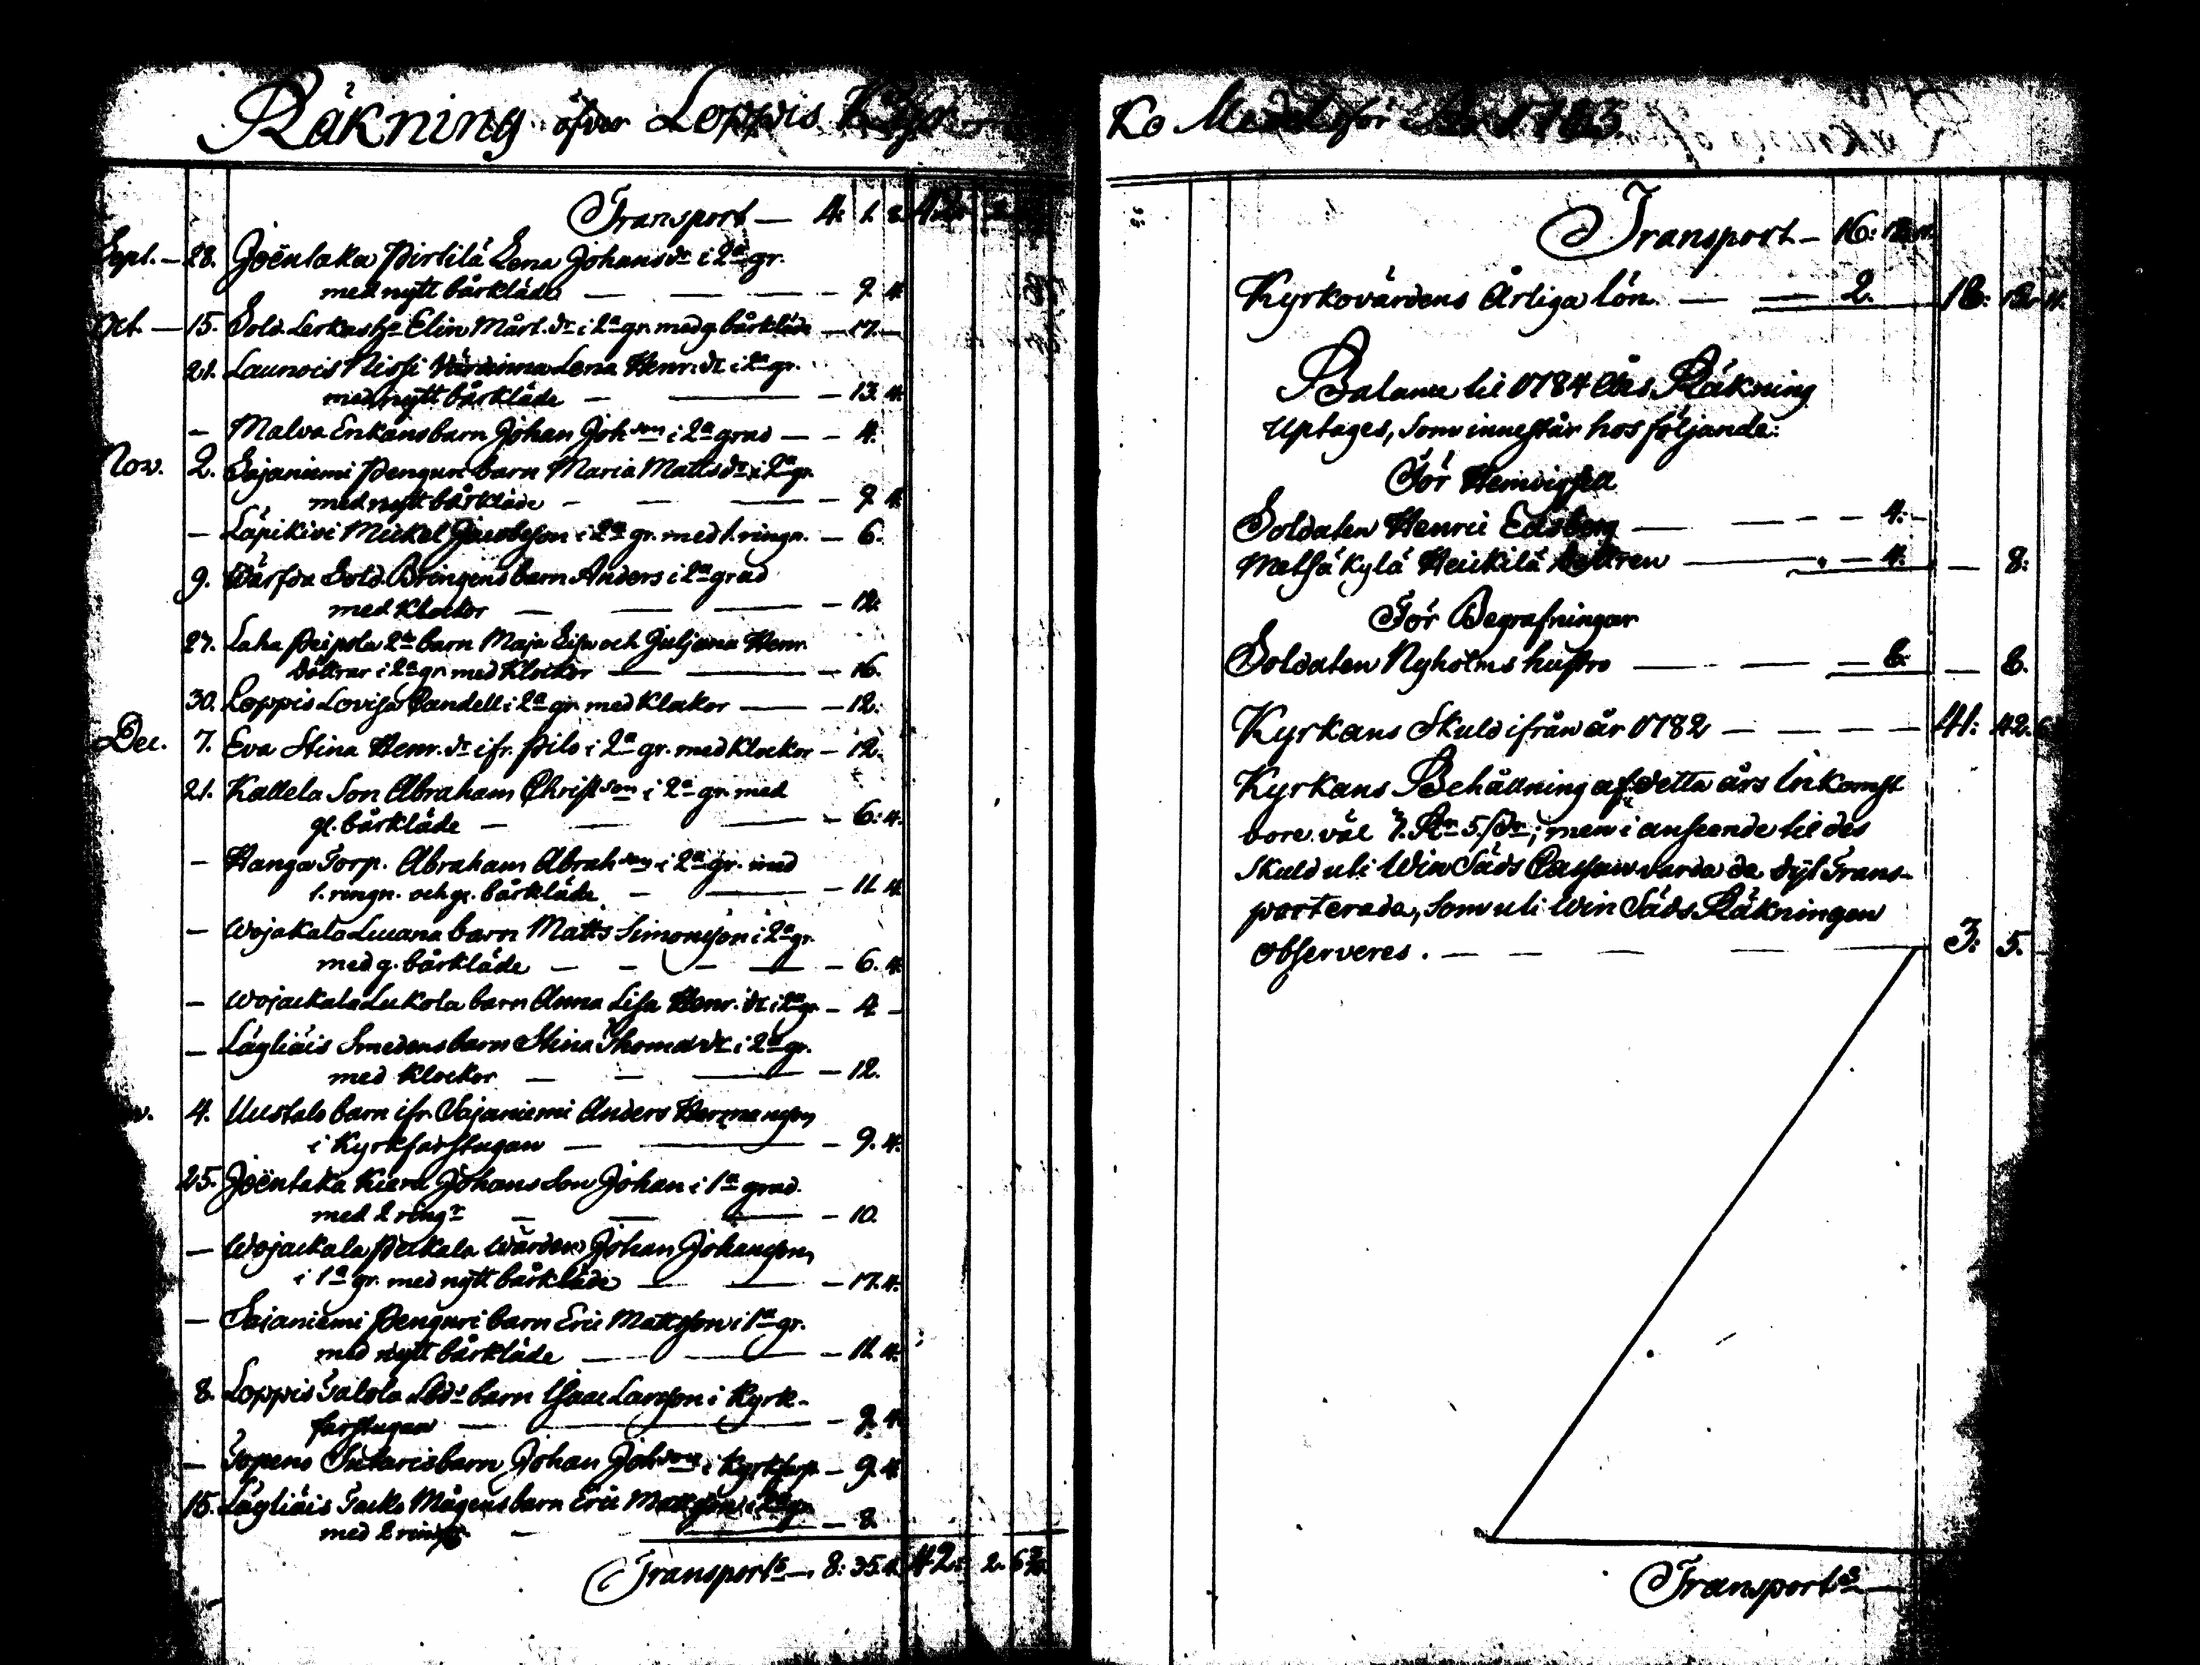 Räkning öfver Loppis Kyr-
Transport — 4: 1. 2.
Sept. — 28. Joëntaka Pirtilä Lena Johans dr i 2a gr.
med nytt bårkläde — — — 9. 4.
Oct. — 15. Sold. Lerkas h:o Elin Mårt. dr i 2a gr. med g. bårkläde — 17. —
21. Launois Nissi Värdinna Lena Henr. dr i 2a gr.
med nytt bårkläde — — 13. 4.
— Malva Enkans barn Johan Joh son i 2a grad — — 4.
Nov. 2. Sajaniemi Penguri barn Maria Matts dr i 2a gr.
med nytt bårkläde — — — 9. 4.
— Läpikivi Mickel Jacobsson i 2a gr. med 1. ringn. — 6.
9. Sold. Bringens barn Anders i 2a grad
med Klockor — — — 12.
27. Laha Peipola 2ne barn Maja Lisa och Juljana Henr.
döttrar i 2a gr. med Klockor — — 16.
30. Loppis Lovisa Pandell i 2a gr. med Klockor — — 12.
Dec. 7. Eva Stina Henr. dr ifr. Pilo i 2a gr. med Klockor — 12.
21. Kallela Son Abraham Christ son i 2a gr. med
gl. bårkläde — — — 6: 4.
— Hanga Torp. Abraham Abrah son i 2a gr. med
1. ringn. och gl. bårkläde — — 11. 4.
— Wojakala Luuana barn Matts Simonsson i 2a gr.
med g. bårkläde — — — — 6. 4.
— Wojackala Lukola barn Anna Lisa Henr. dr i 2a gr. — 4 —
— Lägliäis Smedens barn Stina Thomæ dr i 2a gr.
med Klockor — — — 12.
4. Uustalo barn ifr. Sajaniemi Anders Hermansson
i Kyrkfarstugan — — 9. 4.
25. Joëntaka Kiera Johans Son Johan i 1a grad.
med 2 ringr — — — 10.
— Wojackala Peckala Wärden Johan Johansson
i 1a gr. med nytt bårkläde — — 17. 4.
— Sajaniemi Penguri barn Eric Mattsson i 1a gr.
med nytt bårkläde — — 11. 4.
8. Loppis Talola barn Isaac Larsson i Kyrk-
farstugan — — 9. 4.
— Topeno barn Johan Joh son i Kyrkfarst. — 9. 4.
15. Lägliäis Mågens barn Eric Mattsson i 2a gr.
med 2 ringr — — 8.
Transport — 8: 35. 4. 42: 2. 6
Ko Medel för År 1783.
Transport — 16:
Kyrkovärdens Årliga lön — — 2. 18:
Balance til 1784 Års Räkning
Uptages, Som innestår hos följande:
För Hemvigsel
Soldaten Henric Edsberg — — — — 4: —
Metsäkylä Heikilä — — 4. — 8:
För Begrafningar
Soldaten Nyholms hustro — — — 8: — 8.
Kyrkans Skuld ifrån år 1782 — — — — 41: 42.
Kyrkans Behållning af detta års Inkomst
bore väl 3. Rr 5. sr; men i anseende til des
skuld uti Win Säds Cassan varda de dyt Trans-
porterade, som uti Win Säds Räkningen
observeres. — — — — 3: 5. —
Transport